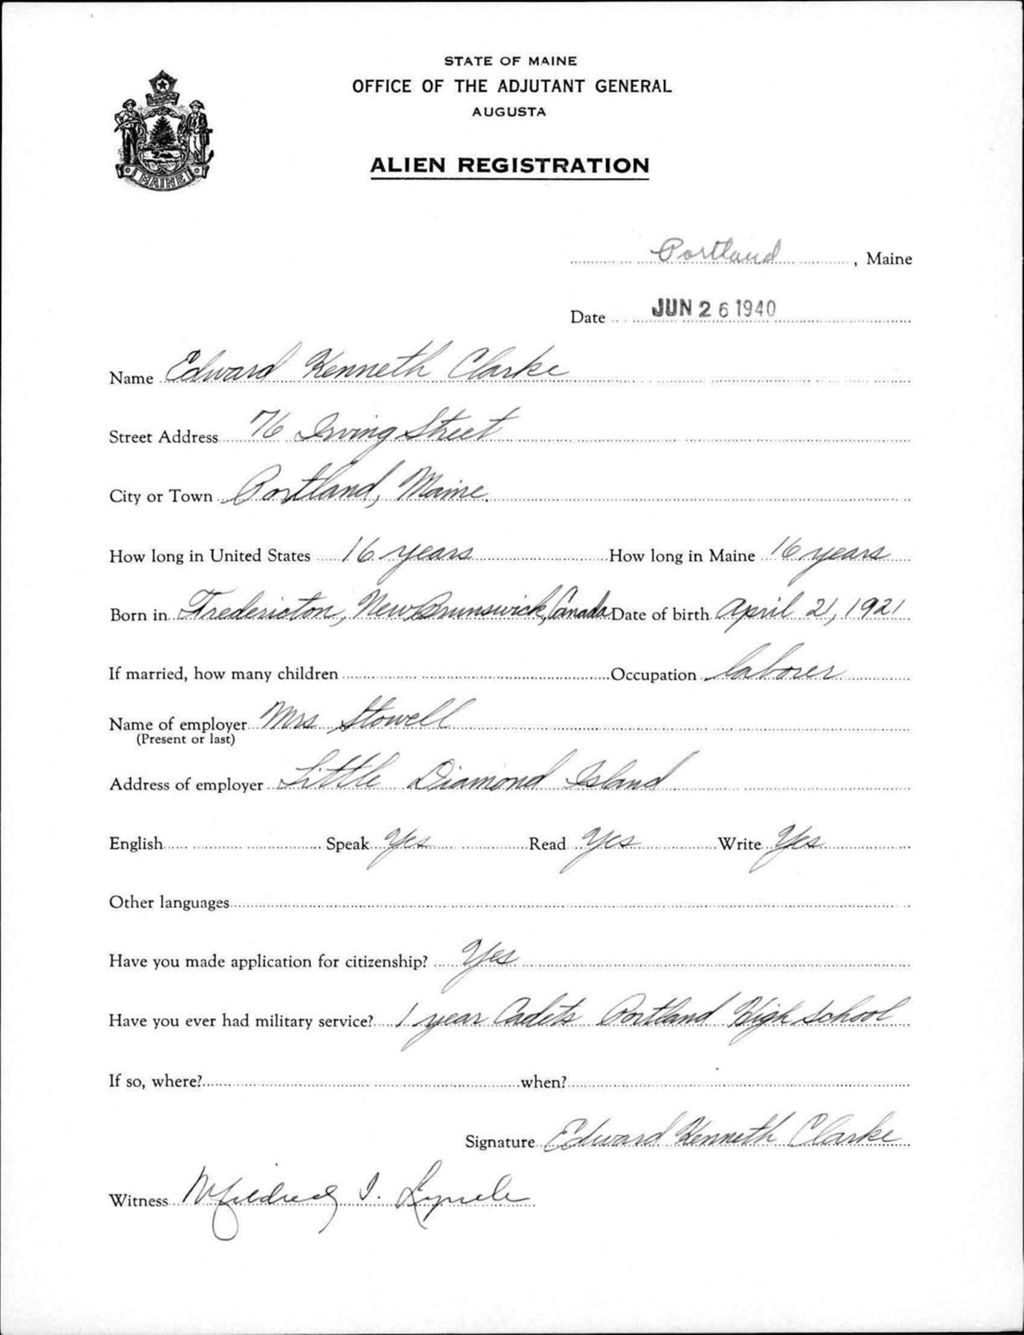 STATE OF MAINE
OFFICE OF THE ADJUTANT GENERAL
AUGUSTA
ALIEN REGISTRATION
MAINE
Portland, Maine
Date JUN 26 1940
Name Edward Kenneth Clarke
Street Address 76 Irving Street
City or Town Portland, Maine
How long in United States 16 years How long in Maine 16 years
Born in Fredericton, New Brunswick, Canada Date of birth April 21, 1921
If married, how many children Occupation laborer
Name of employer Mrs Stowell
(Present or last)
Address of employer Little Diamond Island
English Speak Yes Read Yes Write Yes
Other languages
Have you made application for citizenship? Yes
Have you ever had military service? 1 year Cadets Portland High School
If so, where? when?
Signature Edward Kenneth Clarke
Witness Mildred I. Lynch